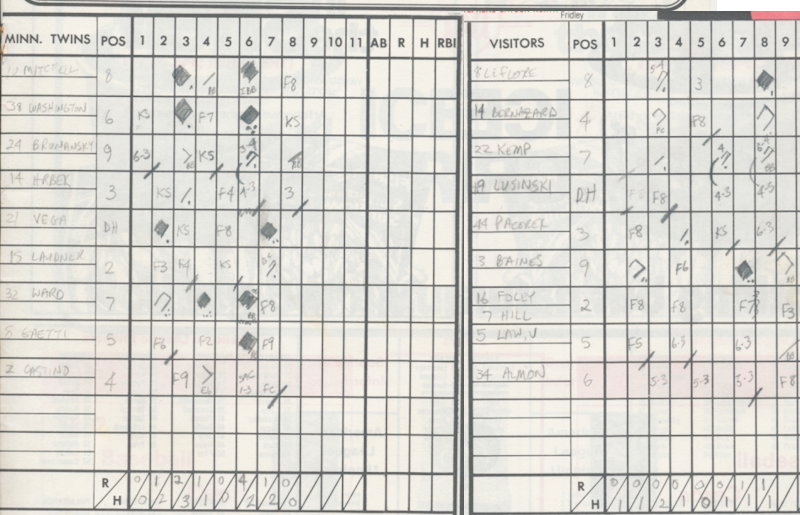 Fridley
MINN. TWINS POS 1 2 3 4 5 6 7 8 9 10 11 AB R H RBI
MITCHELL 8 BB IBB F8
38 WASHINGTON 6 KS F7 KS
24 BRUNANSKY 9 6-3 BB KS BB
14 HRBEK 3 KS F4 4-3 3
21 VEGA DH KS F8
15 LAUDNER 2 F3 F4 KS
32 WARD 7 BB F8
5 GAETTI 5 F6 F2 BB F9
2 CASTINO 4 F9 E6 SAC 1-3 FC
R 0 1 2 1 0 4 1 0
H 0 2 3 1 0 2 2 0
VISITORS POS 1 2 3 4 5 6 7 8 9
8 LEFLORE 8 5-4 3
14 BERNAZARD 4 FC F8
22 KEMP 7 BB
19 LUSINSKI DH F8 F8 4-3 4-3
44 PACOREK 3 F8 KS 6-3
3 BAINES 9 F6 BB
16 FOLEY 2 F8 F8 F7 F3
7 HILL
5 LAW, V 5 F5 6-3 6-3 BB
34 ALMON 6 5-3 5-3 3-3 F8
R 0 0 0 0 0 0 1 1
H 1 1 2 1 0 1 1 1